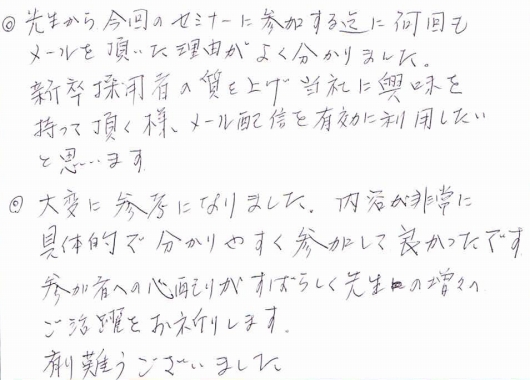 ◎ 先生から今回のセミナーに参加する迄に何回も
メールを頂いた理由がよく分かりました。
新卒採用者の質を上げ当社に興味を
持って頂く様、メール配信を有効に利用したい
と思います
◎ 大変に参考になりました。内容が非常に
具体的で分かりやすく参加して良かったです
参加者への心配りがすばらしく先生の増々の
ご活躍をお祈りします。
有難うございました